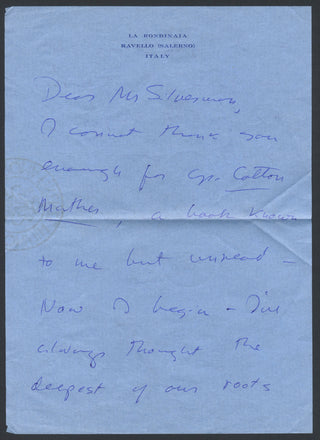 LA RONDINAIA
RAVELLO (SALERNO)
ITALY
Dear Mr Silverman,
I cannot thank you
enough for yr. Cotton
Mather, a book known
to me but unread –
Now I begin – I've
always thought the
deepest of our roots